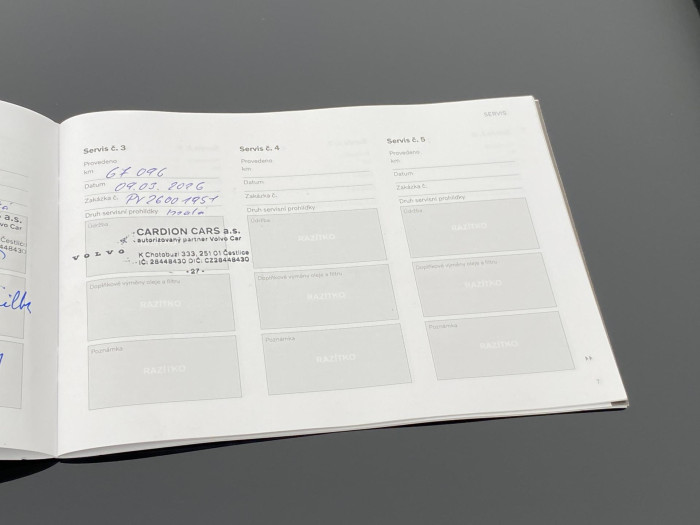 SERVIS
Servis č. 3
Provedeno
km 67 096
Datum 09.03. 2026
Zakázka č. PV26001951
Druh servisní prohlídky malá
Údržba
CARDION CARS a.s.
autorizovaný partner Volvo Car
VOLVO
K Chotobuzi 333, 251 01 Čestlice
IČ: 28448430 DIČ: CZ28448430
- 27 -
Doplňkové výměny oleje a filtru
RAZÍTKO
Poznámka
RAZÍTKO
Servis č. 4
Provedeno
km
Datum
Zakázka č.
Druh servisní prohlídky
Údržba
RAZÍTKO
Doplňkové výměny oleje a filtru
RAZÍTKO
Poznámka
RAZÍTKO
Servis č. 5
Provedeno
km
Datum
Zakázka č.
Druh servisní prohlídky
Údržba
RAZÍTKO
Doplňkové výměny oleje a filtru
RAZÍTKO
Poznámka
RAZÍTKO
a.s.
Čestlice